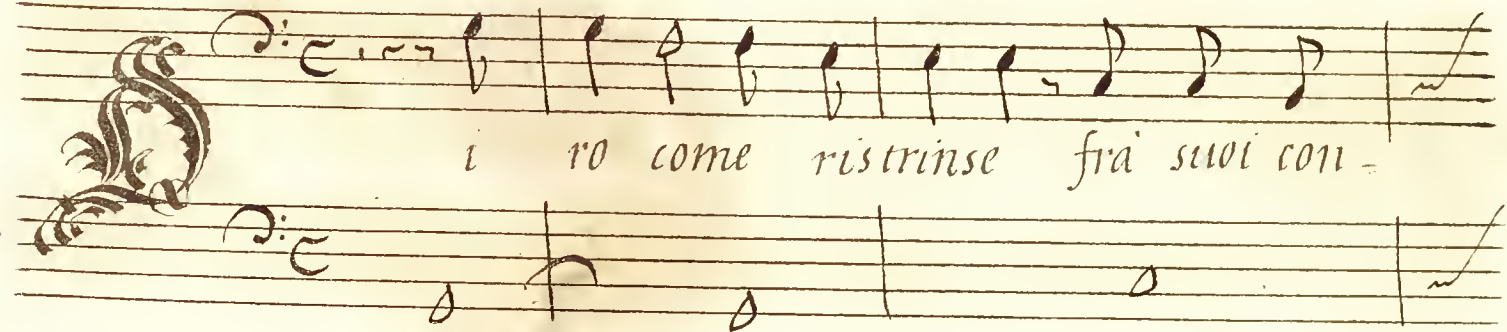 Diro come ristrinse frà suoi con=